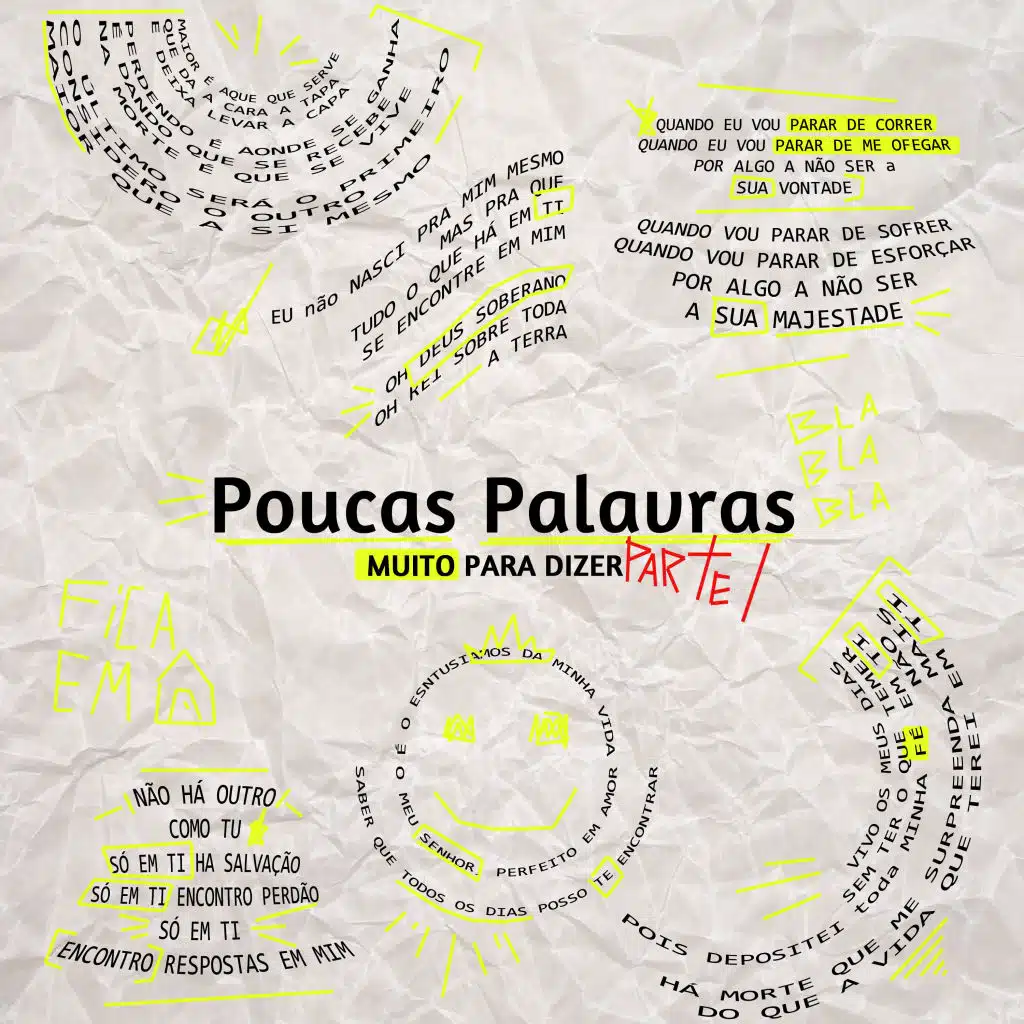 MAIOR É AQUE QUE SERVE
QUE DA A CARA A TAPA
E DEIXA LEVAR A CAPA
PERDENDO É AONDE SE GANHA
É DANDO QUE SE RECEBE
NA MORTE É QUE SE VIVE
O ULTIMO SERÁ O PRIMEIRO
CONSIDERO O OUTRO
MAIOR QUE A SI MESMO
EU não NASCI PRA MIM MESMO
MAS PRA QUE
TUDO O QUE HÁ EM TI
SE ENCONTRE EM MIM
OH DEUS SOBERANO
OH REI SOBRE TODA
A TERRA
QUANDO EU VOU PARAR DE CORRER
QUANDO EU VOU PARAR DE ME OFEGAR
POR ALGO A NÃO SER a
SUA VONTADE
QUANDO VOU PARAR DE SOFRER
QUANDO VOU PARAR DE ESFORÇAR
POR ALGO A NÃO SER
A SUA MAJESTADE
BLA
BLA
BLA
Poucas Palavras
MUITO PARA DIZER PARTE 1
FiCA
EM
NÃO HÁ OUTRO
COMO TU
SÓ EM TI HA SALVAÇÃO
SÓ EM TI ENCONTRO PERDÃO
SÓ EM TI
ENCONTRO RESPOSTAS EM MIM
É O ESNTUSIAMOS DA MINHA VIDA
O MEU SENHOR. PERFEITO EM AMOR
SABER QUE TODOS OS DIAS POSSO TE ENCONTRAR
VIVO OS MEUS DIAS
SEM TER O QUE TEMER
POIS DEPOSITEI toda MINHA FÉ EM TI
NÃO HÁ MORTE QUE ME SURPREENDA
MAIS DO QUE A VIDA QUE TEREI EM TI